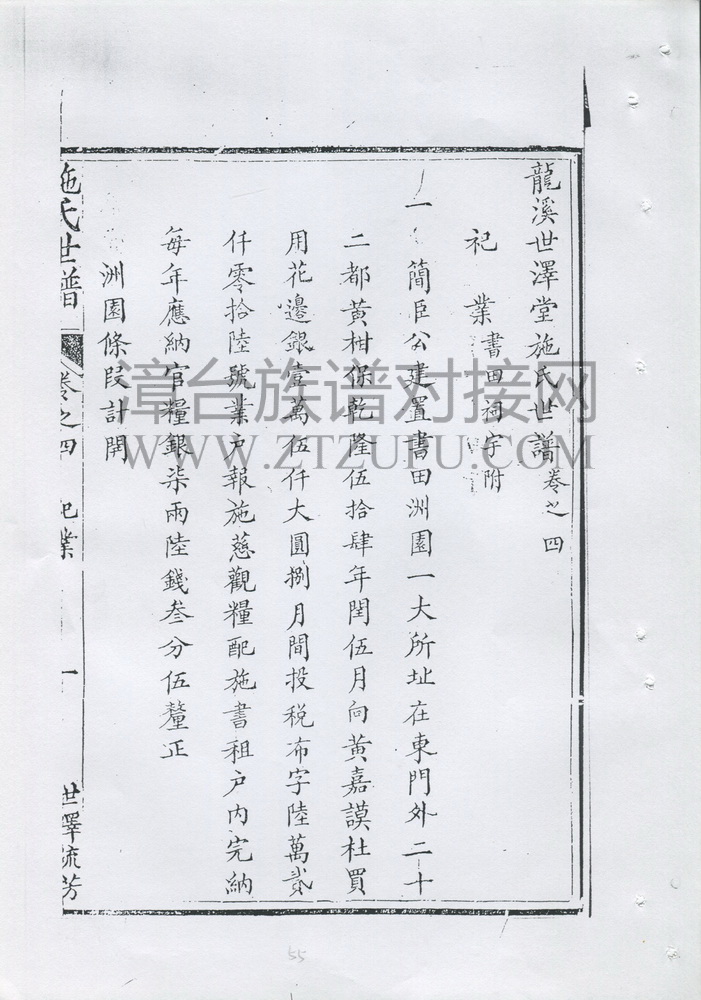 龍溪世澤堂施氏世譜卷之四
祀業書田祠宇附
一簡臣公建置書田洲園一大所址在東門外二十
二都黃柑保乾隆伍拾肆年閏伍月向黃嘉謨杜買
用花邊銀壹萬伍仟大圓捌月間投税布字陸萬貳
仟零拾陸號業户報施慈觀糧配施書租户内完納
每年應納官糧銀柒兩陸錢叁分伍釐正
洲園條段計開
施氏世譜 卷之四 祀業 一 世澤流芳
漳台族谱对接网
WWW.ZTZUPU.COM
55